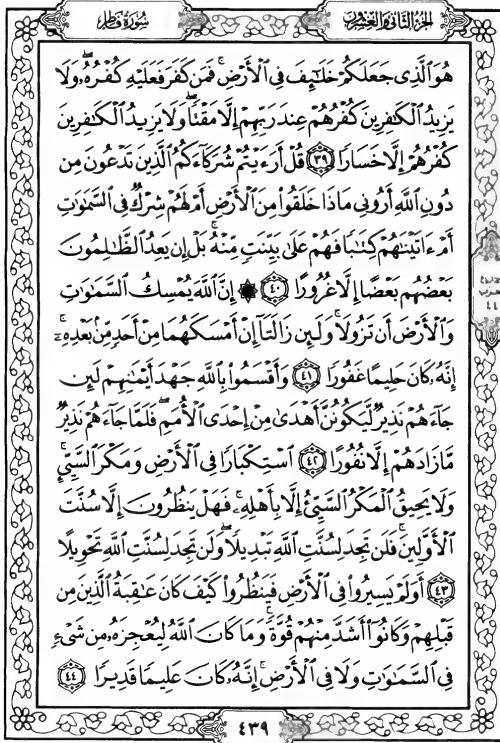 سُورَةُ فَاطِرٍ
الجُزْءُ الثَّانِي وَالعِشْرُونَ
هُوَ ٱلَّذِى جَعَلَكُمْ خَلَـٰٓئِفَ فِى ٱلْأَرْضِ ۚ فَمَن كَفَرَ فَعَلَيْهِ كُفْرُهُۥ ۖ وَلَا
يَزِيدُ ٱلْكَـٰفِرِينَ كُفْرُهُمْ عِندَ رَبِّهِمْ إِلَّا مَقْتًا ۖ وَلَا يَزِيدُ ٱلْكَـٰفِرِينَ
كُفْرُهُمْ إِلَّا خَسَارًا ٣٩ قُلْ أَرَءَيْتُمْ شُرَكَآءَكُمُ ٱلَّذِينَ تَدْعُونَ مِن
دُونِ ٱللَّهِ أَرُونِى مَاذَا خَلَقُوا۟ مِنَ ٱلْأَرْضِ أَمْ لَهُمْ شِرْكٌ فِى ٱلسَّمَـٰوَٰتِ
أَمْ ءَاتَيْنَـٰهُمْ كِتَـٰبًا فَهُمْ عَلَىٰ بَيِّنَتٍ مِّنْهُ ۚ بَلْ إِن يَعِدُ ٱلظَّـٰلِمُونَ
بَعْضُهُم بَعْضًا إِلَّا غُرُورًا ٤٠ ۞ إِنَّ ٱللَّهَ يُمْسِكُ ٱلسَّمَـٰوَٰتِ
وَٱلْأَرْضَ أَن تَزُولَا ۚ وَلَئِن زَالَتَآ إِنْ أَمْسَكَهُمَا مِنْ أَحَدٍ مِّنۢ بَعْدِهِۦٓ ۚ
إِنَّهُۥ كَانَ حَلِيمًا غَفُورًا ٤١ وَأَقْسَمُوا۟ بِٱللَّهِ جَهْدَ أَيْمَـٰنِهِمْ لَئِن
جَآءَهُمْ نَذِيرٌ لَّيَكُونُنَّ أَهْدَىٰ مِنْ إِحْدَى ٱلْأُمَمِ ۖ فَلَمَّا جَآءَهُمْ نَذِيرٌ
مَّا زَادَهُمْ إِلَّا نُفُورًا ٤٢ ٱسْتِكْبَارًا فِى ٱلْأَرْضِ وَمَكْرَ ٱلسَّيِّئِ ۚ
وَلَا يَحِيقُ ٱلْمَكْرُ ٱلسَّيِّئُ إِلَّا بِأَهْلِهِۦ ۚ فَهَلْ يَنظُرُونَ إِلَّا سُنَّتَ
ٱلْأَوَّلِينَ ۚ فَلَن تَجِدَ لِسُنَّتِ ٱللَّهِ تَبْدِيلًا ۖ وَلَن تَجِدَ لِسُنَّتِ ٱللَّهِ تَحْوِيلًا
٤٣ أَوَلَمْ يَسِيرُوا۟ فِى ٱلْأَرْضِ فَيَنظُرُوا۟ كَيْفَ كَانَ عَـٰقِبَةُ ٱلَّذِينَ مِن
قَبْلِهِمْ وَكَانُوٓا۟ أَشَدَّ مِنْهُمْ قُوَّةً ۚ وَمَا كَانَ ٱللَّهُ لِيُعْجِزَهُۥ مِن شَىْءٍ
فِى ٱلسَّمَـٰوَٰتِ وَلَا فِى ٱلْأَرْضِ ۚ إِنَّهُۥ كَانَ عَلِيمًا قَدِيرًا ٤٤
حزب
٤٤
٤٣٩